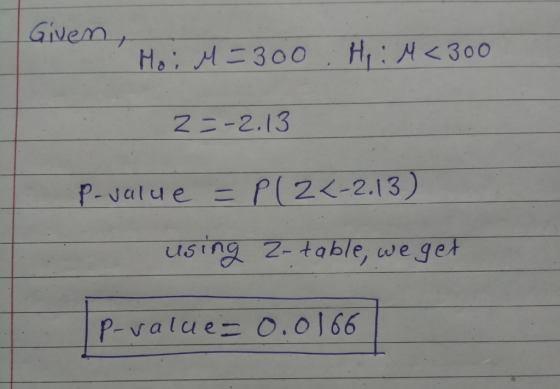 Given,
H₀: μ = 300. H₁: μ < 300
Z = -2.13
P-value = P(Z<-2.13)
using Z-table, we get
P-value = 0.0166